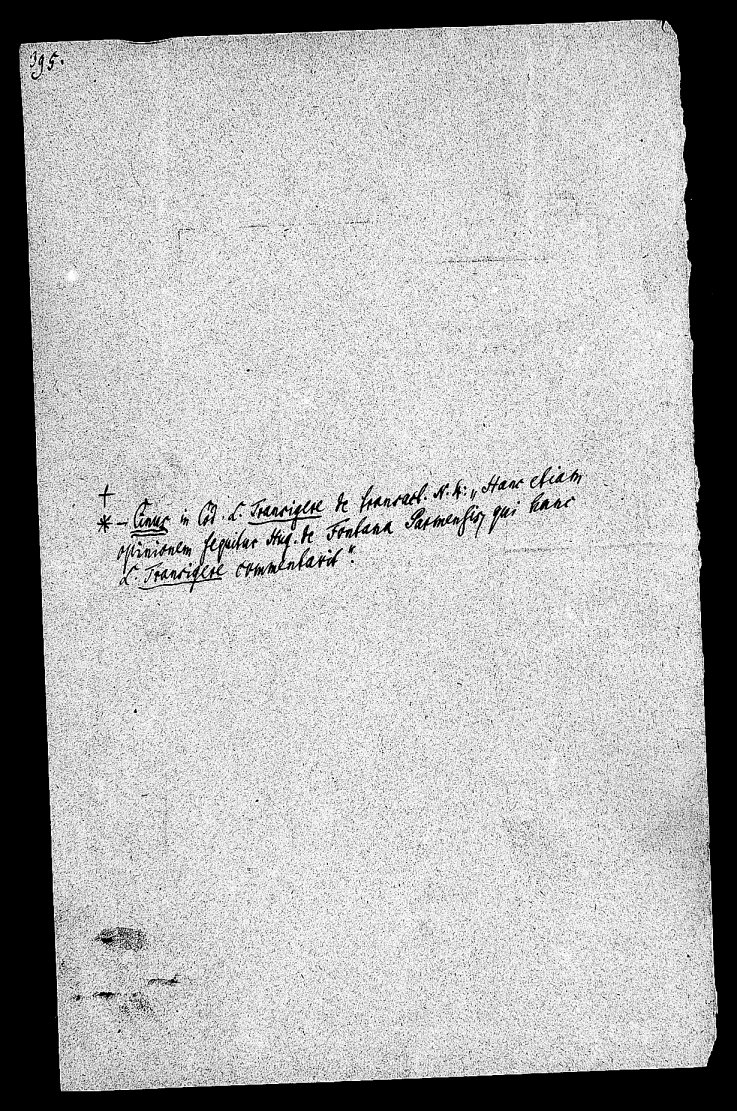 395.
+
* – Cinus in Cod. L. Transigere de transact. N. 4: „Hanc etiam
opinionem sequitur Hug. de Fontana Parmensis, qui hanc
L. Transigere commentavit".